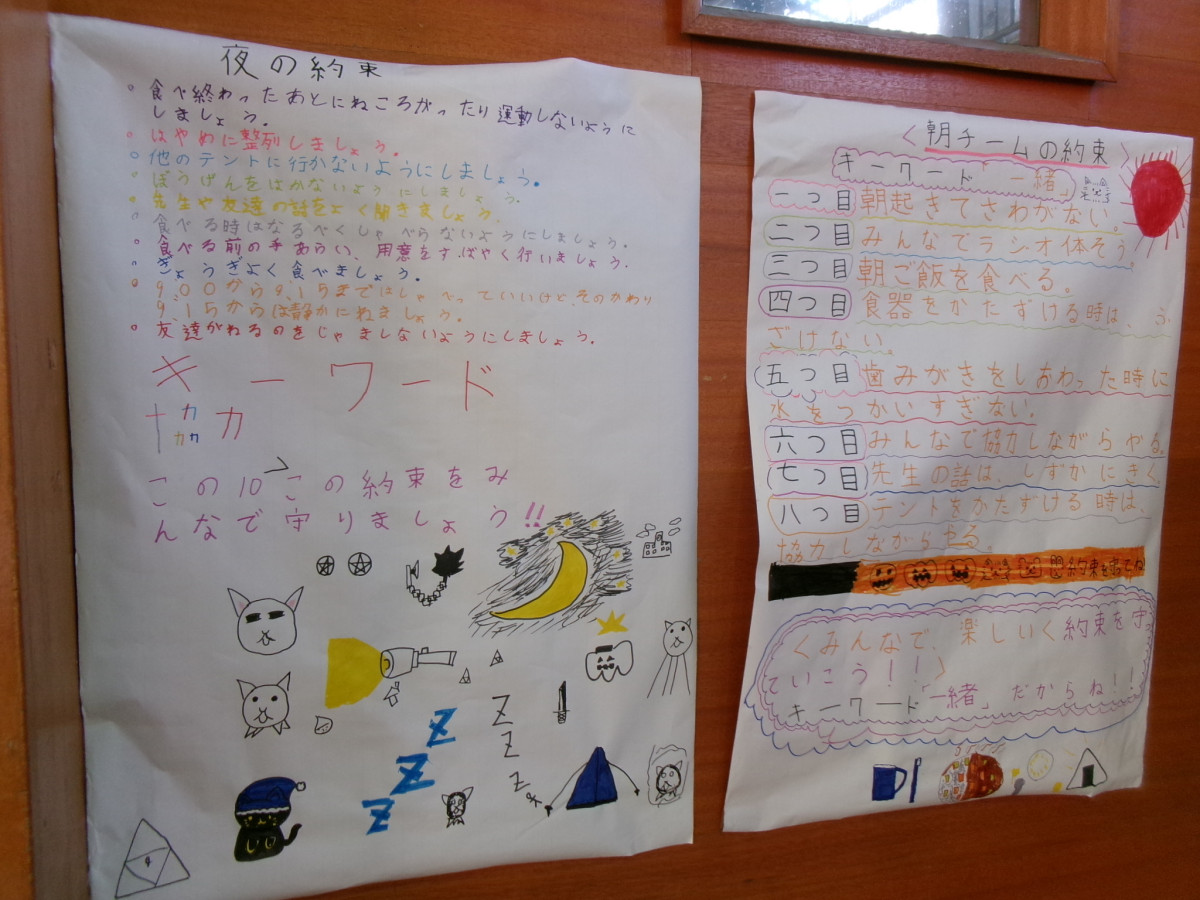 夜の約束
○食べ終わったあとにねころがったり運動しないように
しましょう。
○はやめに整列しましょう。
○他のテントに行かないようにしましょう。
○ぼうげんをはかないようにしましょう。
○先生や友達の話をよく聞きましょう。
○食べる時はなるべくしゃべらないようにしましょう。
○食べる前の手あらい、用意をすばやく行いましょう。
○ぎょうぎよく食べましょう。
○9,00から9,15まではしゃべっていいけど、そのかわり
9,15からは静かにねましょう。
○友達がねるのをじゃましないようにしましょう。
キーワード
協力
この10この約束をみ
んなで守りましょう!!
Z
Z
Z
Z
Z
Z
<朝チームの約束>
キーワード「一緒」
一つ目 朝起きてさわがない。
二つ目 みんなでラジオ体そう。
三つ目 朝ご飯を食べる。
四つ目 食器をかたずける時は、ふ
ざけない。
五つ目 歯みがきをしおわった時に
水をつかいすぎない。
六つ目 みんなで協力しながらやる。
七つ目 先生の話は、しずかにきく
八つ目 テントをかたずける時は、
協力しながらやる。
<みんなで、楽しいく約束を守っ
ていこう!!>
キーワード「一緒」だからね!!